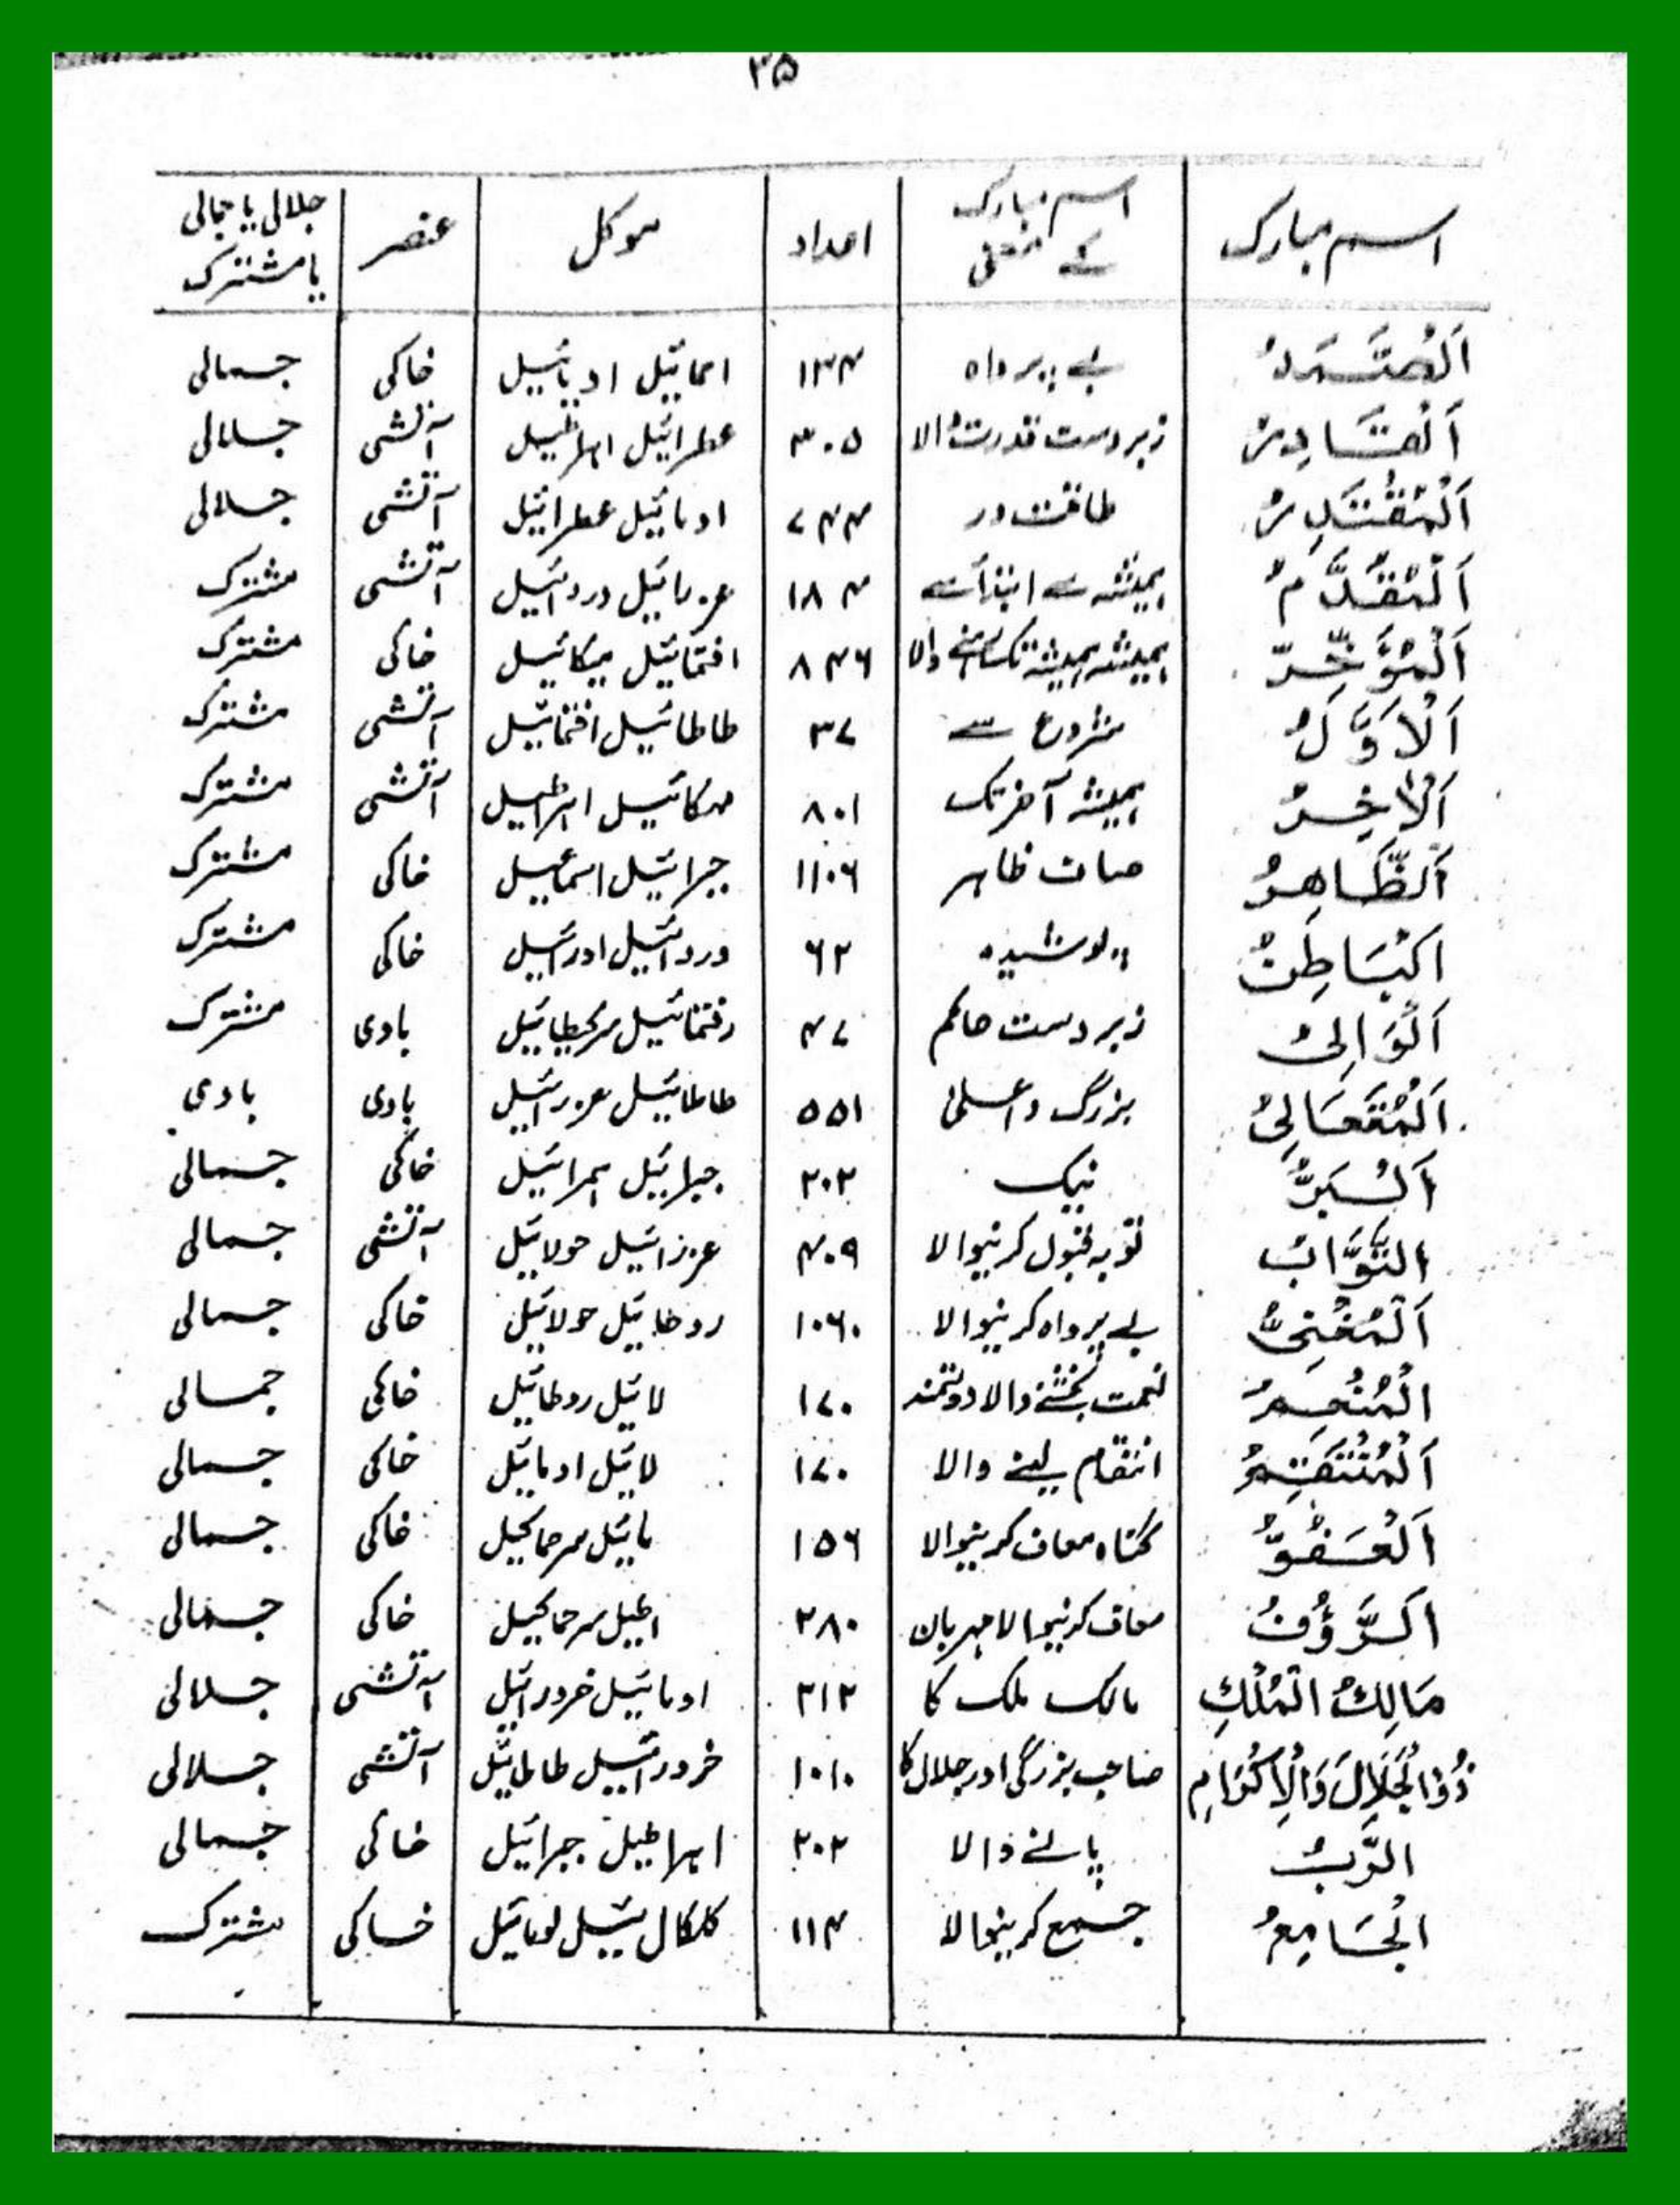 ۳۵
اسم مبارک اسم مبارک کے معنی اعداد موکل عنصر جلالی یا جمالی یا مشترک
اَلصَّمَدُ بے پرواہ ۱۳۴ اسمائیل ادیائیل خاکی جمالی
اَلْقَادِرُ زبردست قدرت والا ۳۰۵ عطرائیل اہراطیل آتشی جلالی
اَلْمُقْتَدِرُ طاقت ور ۷۴۴ ادمائیل عطرائیل آتشی جلالی
اَلْمُقَدَّمُ ہمیشہ سے ابتدا سے ۱۸۴ دردائیل آتشی مشترک
اَلْمُؤَخِّرُ ہمیشہ ہمیشہ تک والا ۸۴۶ افتمائیل میکائیل خاکی مشترک
اَلْاَوَّلُ شروع سے ۳۷ طاطائیل افتمائیل آتشی مشترک
اَلْاٰخِرُ ہمیشہ آخر تک ۸۰۱ مہکائیل اہراطیل آتشی مشترک
اَلظَّاهِرُ صاف ظاہر ۱۱۰۶ جبرائیل اسمٰعیل خاکی مشترک
اَلْبَاطِنُ پوشیدہ ۶۲ دردائیل ادرائیل خاکی مشترک
اَلْوَالِیُ زبردست حاکم ۴۷ رفتمائیل سرکیطائیل بادی مشترک
اَلْمُتَعَالِیُ بزرگ و اعلیٰ ۵۵۱ طاطائیل عزرائیل بادی بادی
اَلْبَرُّ نیک ۲۰۲ جبرائیل امرائیل خاکی جمالی
التَّوَّابُ توبہ قبول کرنیوالا ۴۰۹ عزرائیل حولائیل آتشی جمالی
اَلْمُغْنِیُّ بے پرواہ کرنیوالا ۱۰۶۰ روخائیل حولائیل خاکی جمالی
الْمُنْعِمُ نعمت بخشنے والا دولتمند ۱۷۰ لائیل روطائیل خاکی جمالی
اَلْمُنْتَقِمُ انتقام لینے والا ۱۷۰ لائیل ادمائیل خاکی جمالی
اَلْعَفُوُّ گناہ معاف کرنیوالا ۱۵۶ بائیل سرحماکیل خاکی جمالی
اَلرَّؤُفُ معاف کرنیوالا مہربان ۲۸۰ سرحماکیل خاکی جمالی
مَالِكُ الْمُلْكِ مالک ملک کا ۲۱۲ ادمائیل خرورائیل آتشی جلالی
ذُوْالْجَلَالِ وَالْاِكْرَامِ صاحب بزرگی اور جلال کا ۱۰۱۰ خرورائیل طاطائیل آتشی جلالی
الرَّبُّ پالنے والا ۲۰۲ اہراطیل جبرائیل خاکی جمالی
الْجَامِعُ جمع کرنیوالا ۱۱۴ کلکائیل لومائیل خاکی مشترک